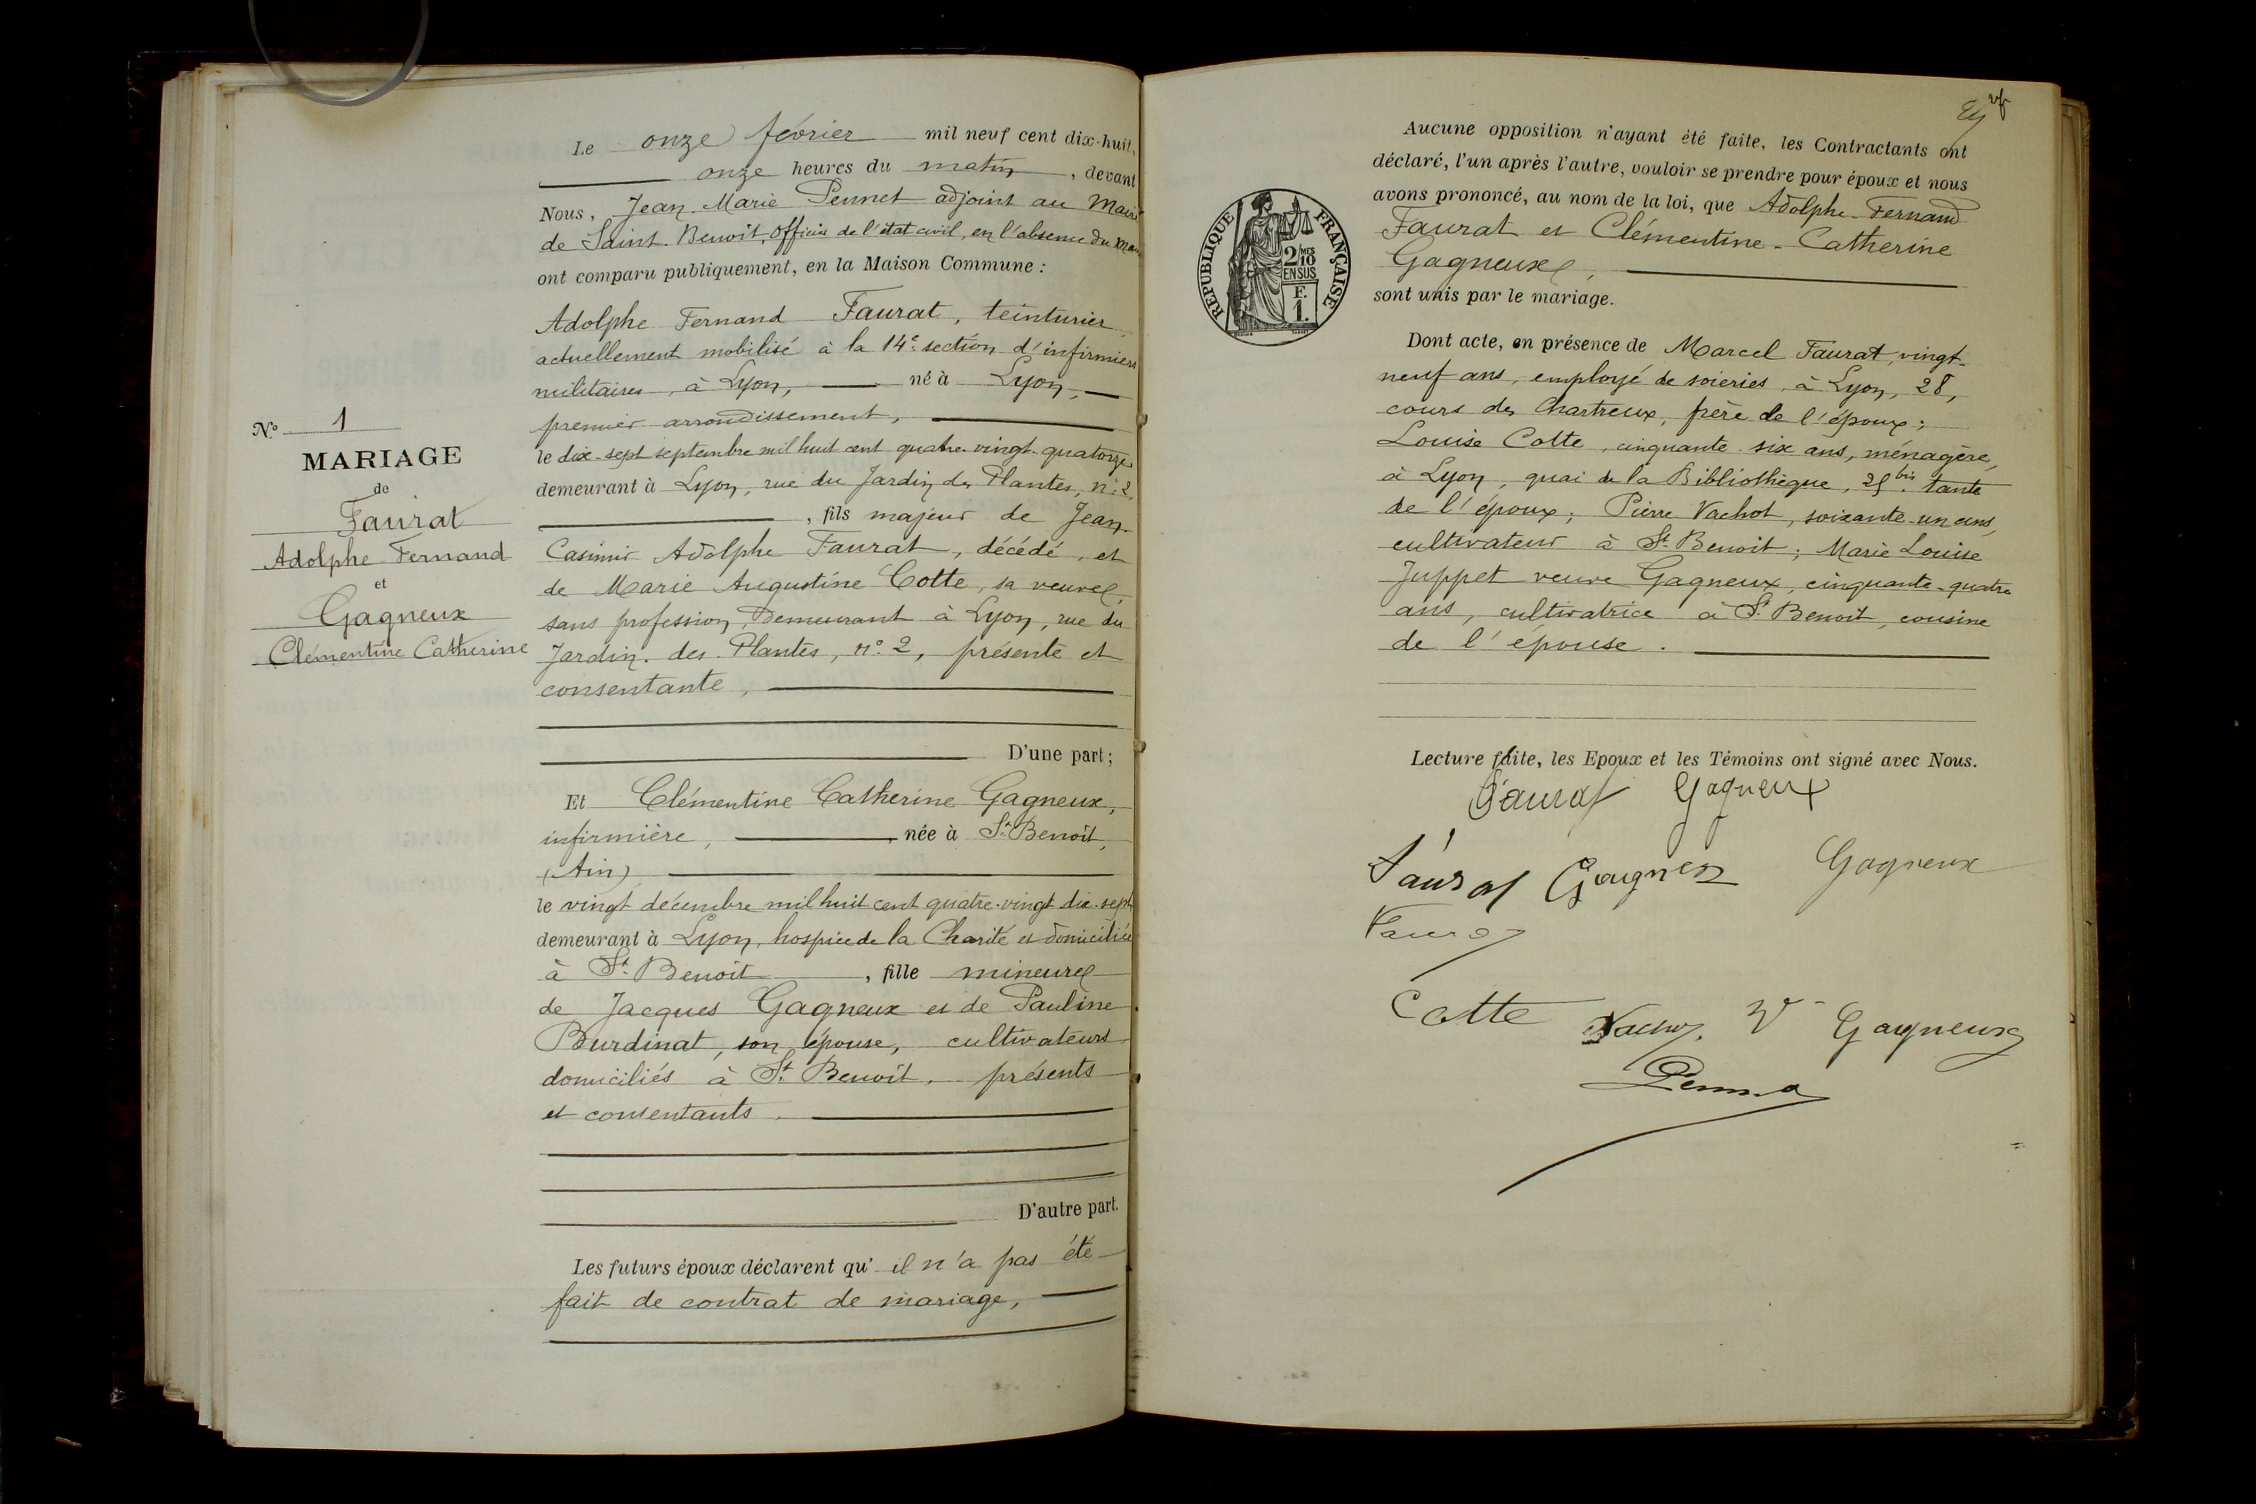 Le onze février mil neuf cent dix-huit,
onze heures du matin, devant
Nous, Jean-Marie Pennet adjoint au Maire
de Saint-Benoit, officier de l'état civil, en l'absence du Maire
ont comparu publiquement, en la Maison Commune :
Adolphe Fernand Faurat, teinturier
actuellement mobilisé à la 14e section d'infirmiers
militaires, à Lyon, né à Lyon,
premier arrondissement,
le dix-sept septembre mil huit cent quatre-vingt-quatorze
demeurant à Lyon, rue du Jardin des Plantes, n° 2,
, fils majeur de Jean-
Casimir Adolphe Faurat, décédé, et
de Marie Augustine Cotte, sa veuve,
sans profession, demeurant à Lyon, rue du
Jardin des Plantes, n° 2, présente et
consentante,
D'une part ;
Et Clémentine Catherine Gagneux,
infirmière, née à St Benoit,
(Ain)
le vingt décembre mil huit cent quatre-vingt dix-sept
demeurant à Lyon, hospice de la Charité et domiciliée
à St Benoit, fille mineure
de Jacques Gagneux et de Pauline
Burdinat, son épouse, cultivateurs
domiciliés à St Benoit, présents
et consentants.
D'autre part.
Les futurs époux déclarent qu'il n'a pas été
fait de contrat de mariage,
N° 1
MARIAGE
de
Faurat
Adolphe Fernand
et
Gagneux
Clémentine Catherine
Aucune opposition n'ayant été faite, les Contractants ont
déclaré, l'un après l'autre, vouloir se prendre pour époux et nous
avons prononcé, au nom de la loi, que Adolphe-Fernand
Faurat et Clémentine-Catherine
Gagneux,
sont unis par le mariage.
RÉPUBLIQUE FRANÇAISE
2/10 MES
EN SUS
F.
1.
Dont acte, en présence de Marcel Faurat, vingt-
neuf ans, employé de soieries, à Lyon, 28,
cours des Chartreux, frère de l'époux ;
Louise Cotte, cinquante-six ans, ménagère,
à Lyon, quai de la Bibliothèque, 25 bis, tante
de l'époux ; Pierre Vachot, soixante-un ans,
cultivateur à St Benoit ; Marie Louise
Juppet veuve Gagneux, cinquante-quatre
ans, cultivatrice à St Benoit, cousine
de l'épouse.
Lecture faite, les Epoux et les Témoins ont signé avec Nous.
Faurat Gagneux
Faurat Gagneux Gagneux
Faurat
Cotte Vachot Ve Gagneux
Pennet